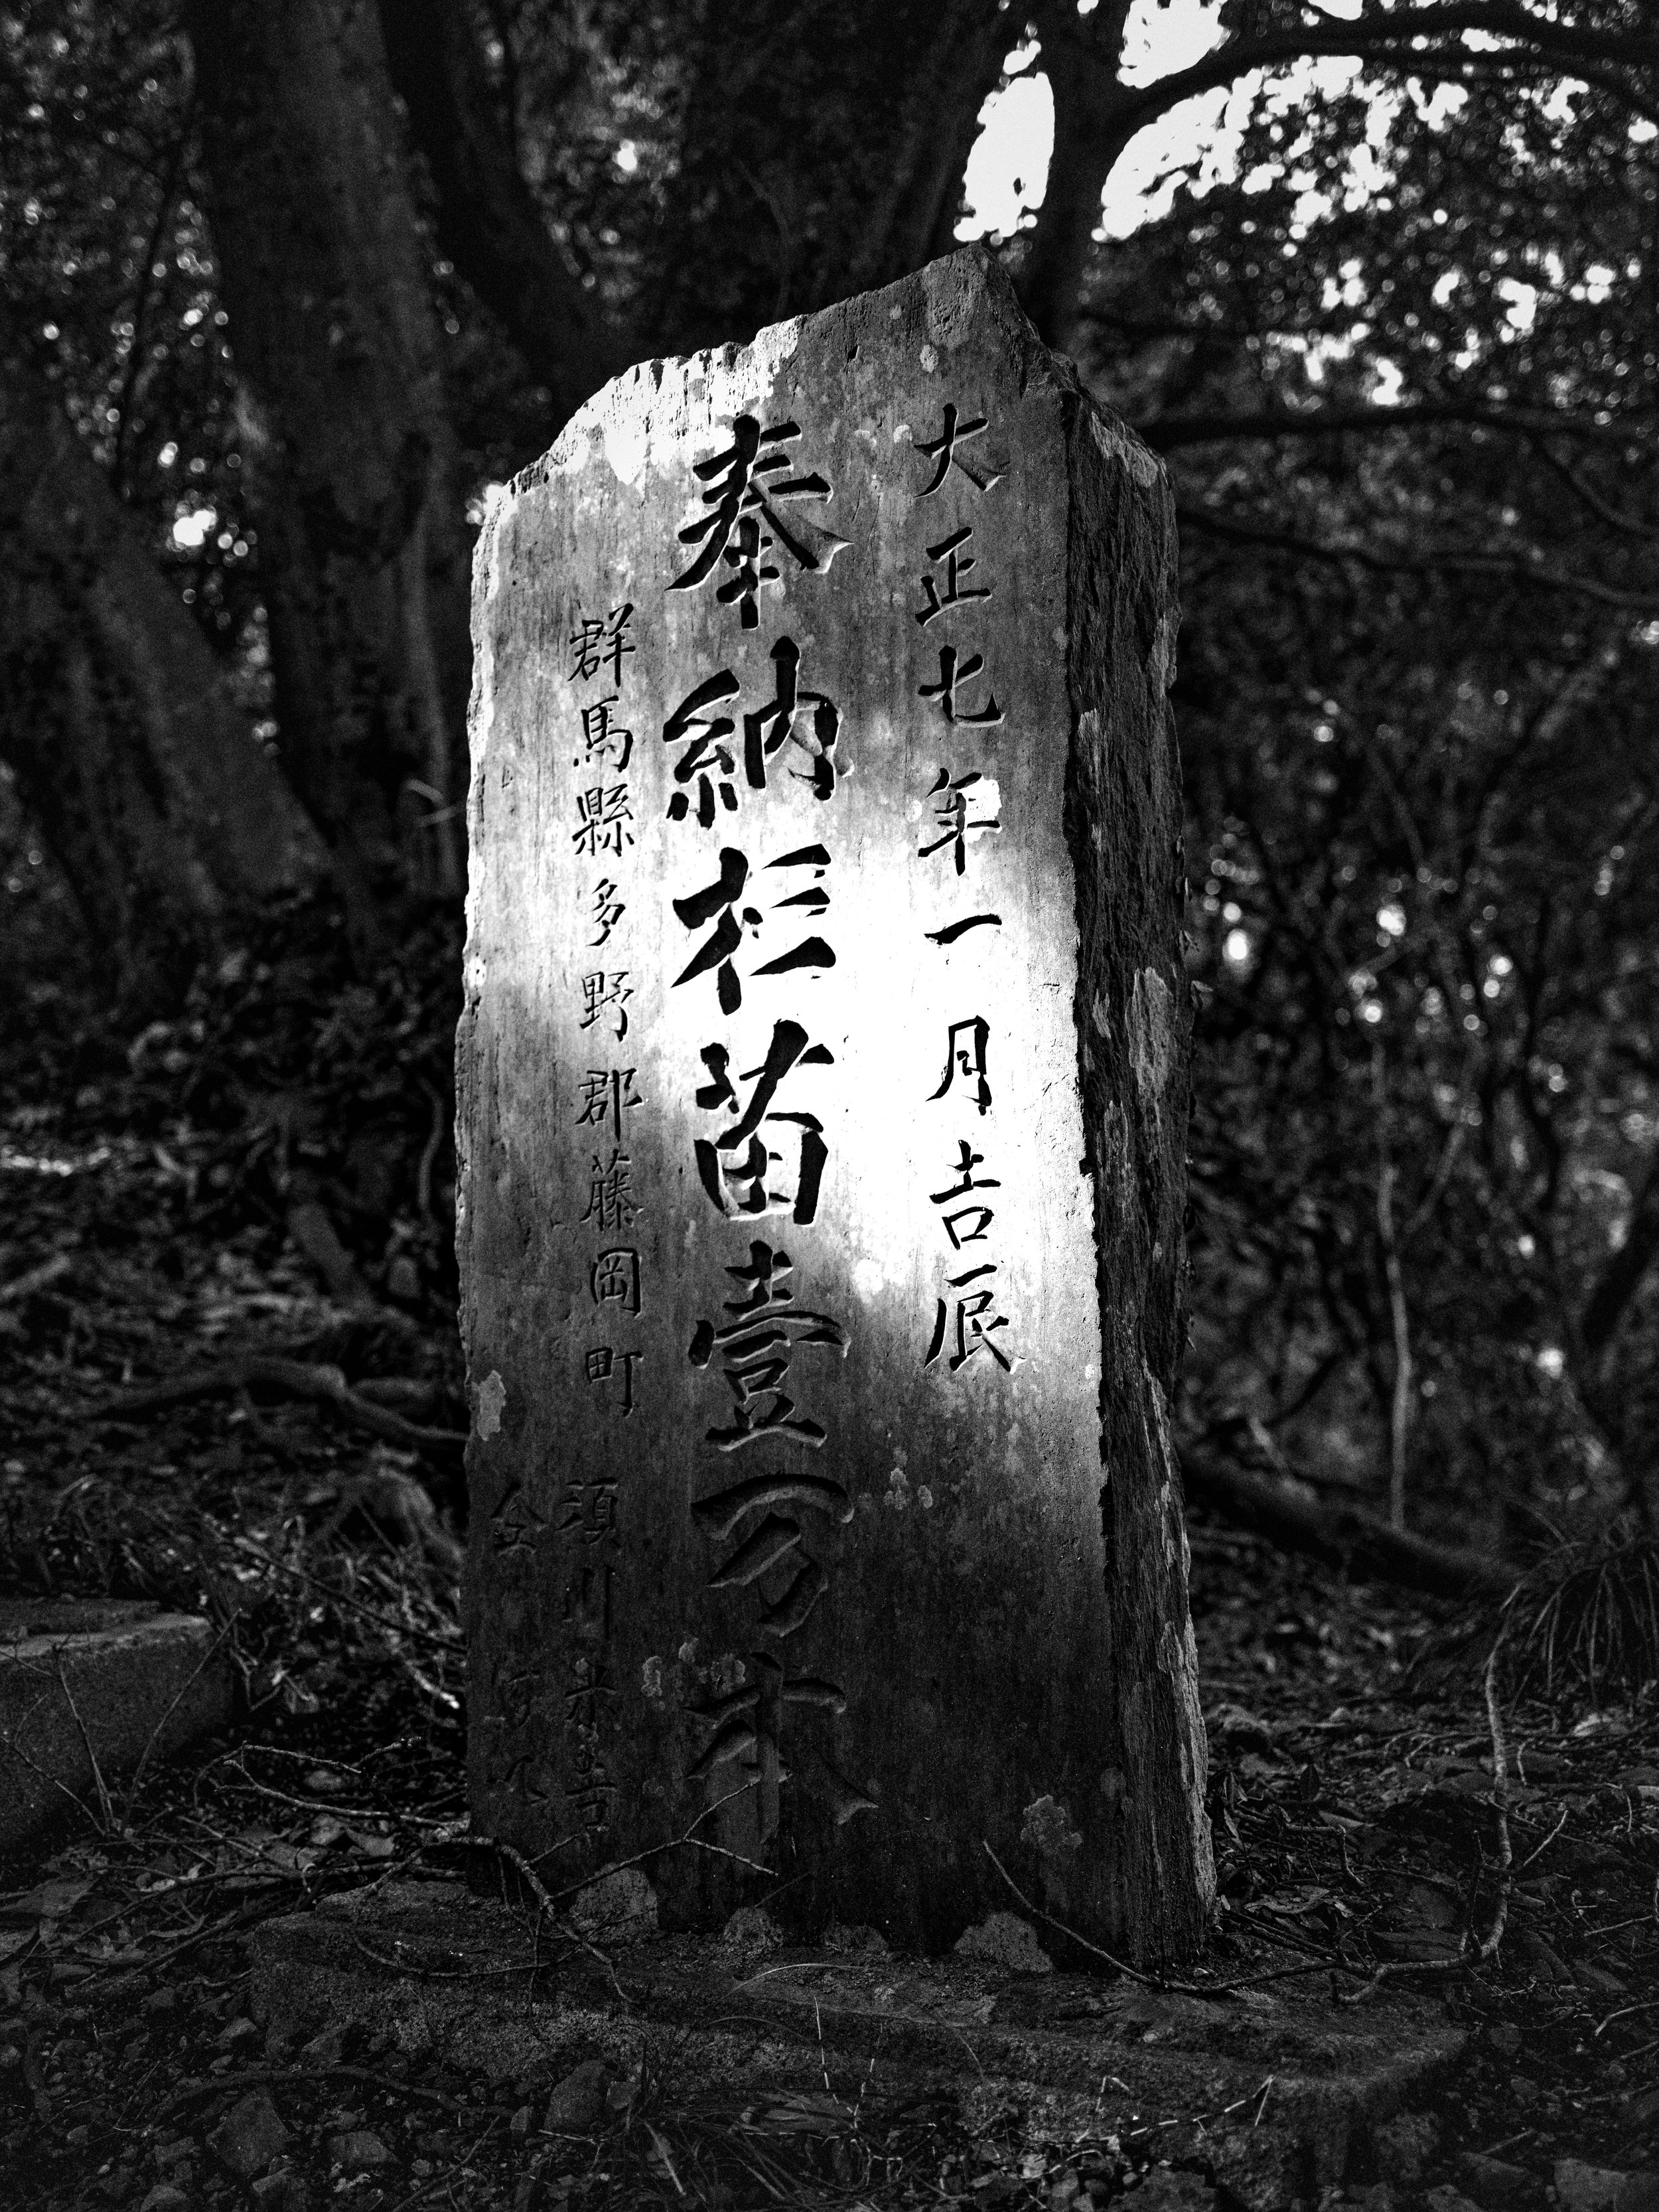 大正七年一月吉辰
奉納杉苗壹万本
群馬縣多野郡藤岡町
須川